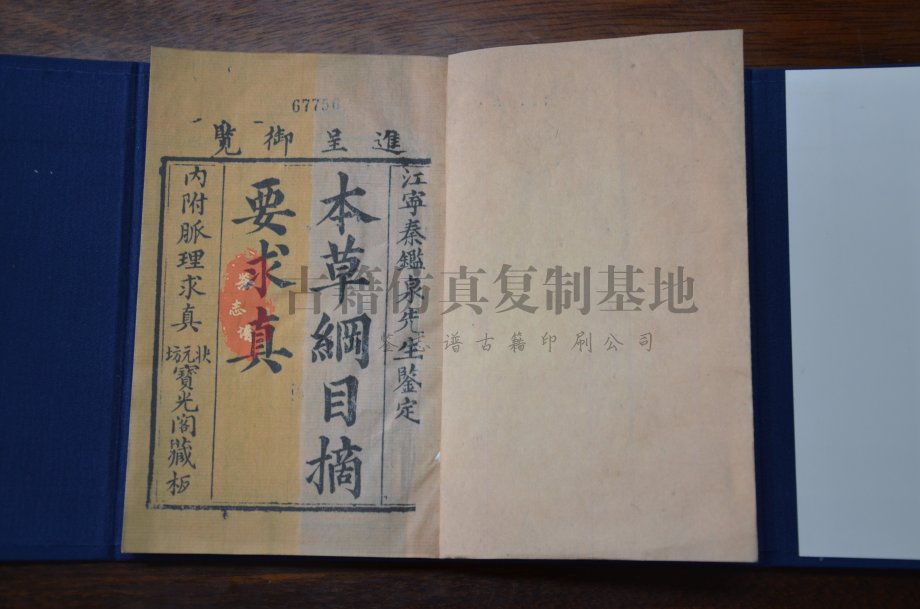 67756
進呈御覧
江寧秦鑑泉先生鑒定
本草綱目摘
要求真
内附脈理求真
状元坊
寶光阁藏板
古籍仿真复制基地
鉴志谱古籍印刷公司
鉴志谱